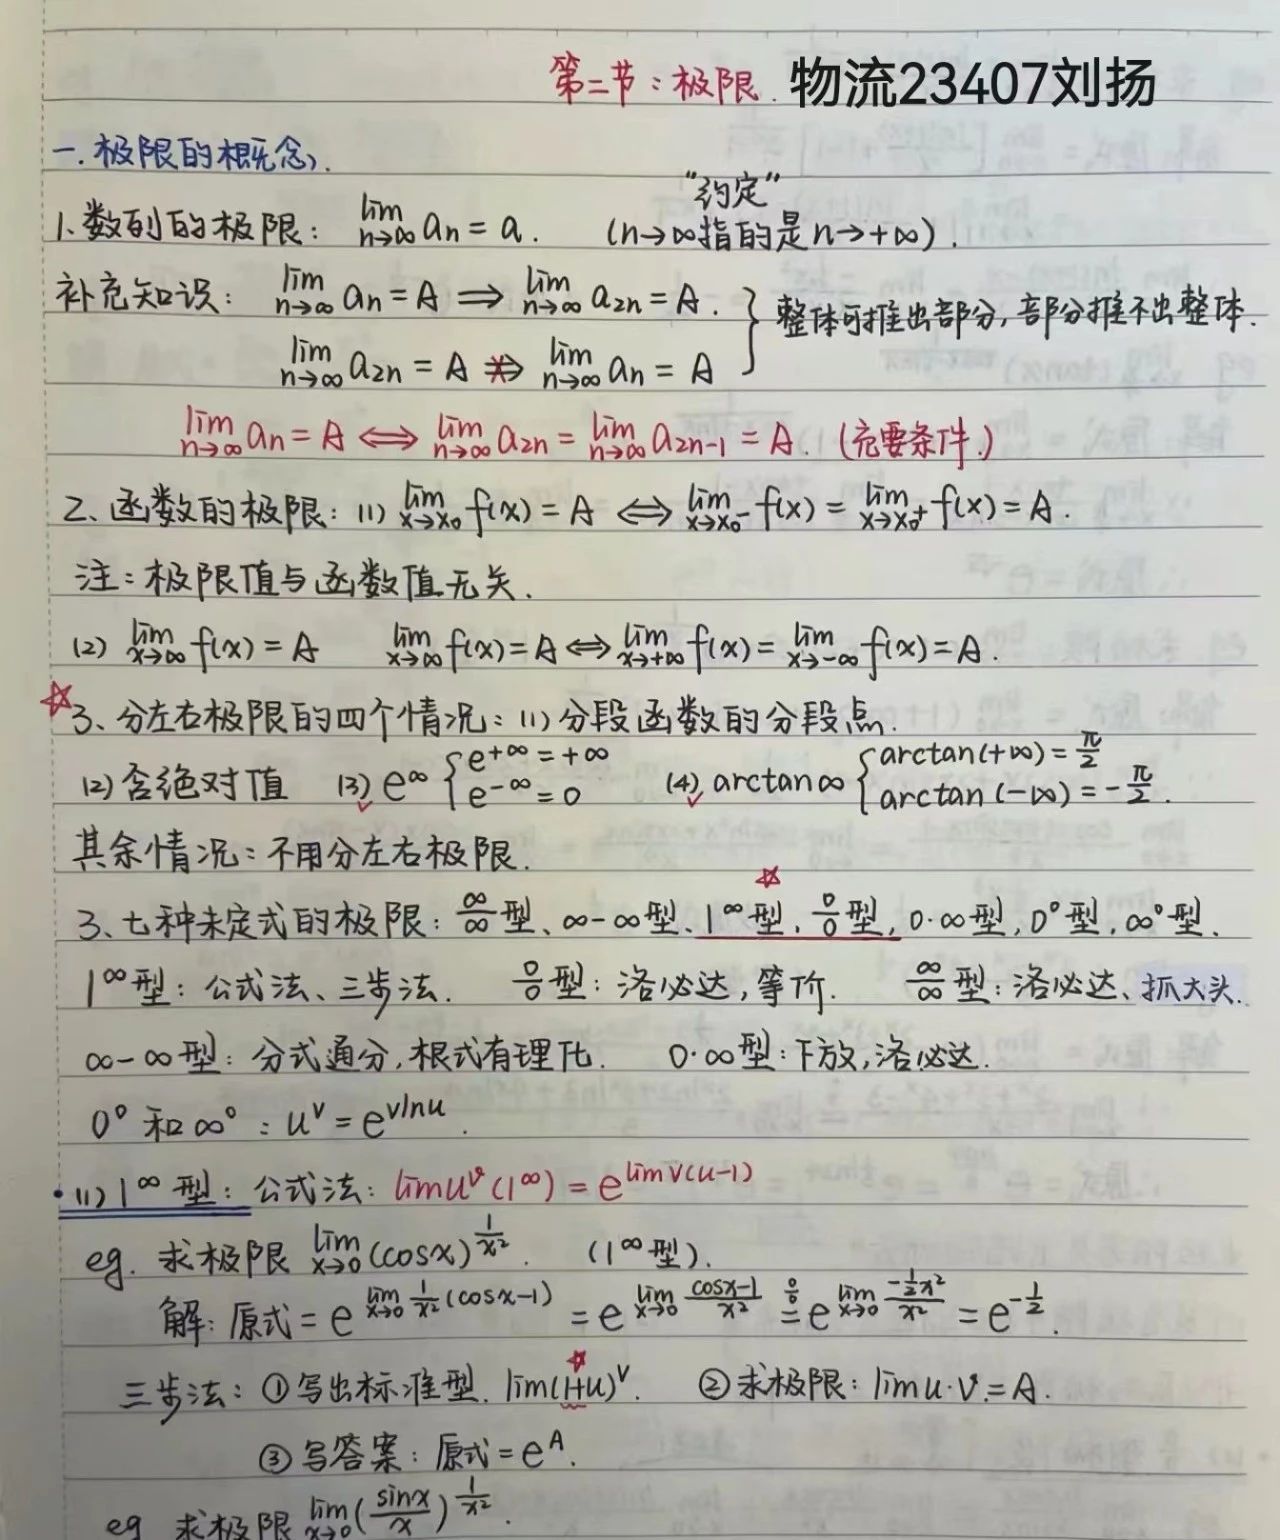 第二节：极限. 物流23407刘扬
一.极限的概念).
“约定”
1.数列的极限： lim n→∞ an = a. (n→∞指的是n→+∞).
补充知识： lim n→∞ an = A ⟹ lim n→∞ a2n = A. } 整体可推出部分,部分推不出整体.
lim n→∞ a2n = A ⇏ lim n→∞ an = A
lim n→∞ an = A ⟺ lim n→∞ a2n = lim n→∞ a2n-1 = A. (充要条件.)
2、函数的极限：(1) lim x→x0 f(x) = A ⟺ lim x→x0- f(x) = lim x→x0+ f(x) = A.
注：极限值与函数值无关.
(2) lim x→∞ f(x) = A lim x→∞ f(x) = A ⟺ lim x→+∞ f(x) = lim x→-∞ f(x) = A.
☆3、分左右极限的四个情况：(1)分段函数的分段点.
(2)含绝对值 (3) e^∞ { e^{+∞} = +∞ e^{-∞} = 0 (4) arctan∞ { arctan(+∞) = π/2 arctan(-∞) = -π/2.
其余情况：不用分左右极限.
☆
3、七种未定式的极限：∞/∞型、∞-∞型、1^∞型、0/0型, 0·∞型, 0^0型, ∞^0型.
1^∞型：公式法、三步法. 0/0型：洛必达,等价. ∞/∞型：洛必达、抓大头.
∞-∞型：分式通分,根式有理化. 0·∞型：下放,洛必达.
0^0 和 ∞^0：u^v = e^{vlnu}.
·(1) 1^∞型：公式法：lim u^v (1^∞) = e^{lim v(u-1)}
eg. 求极限 lim x→0 (cosx)^{1/x²}. (1^∞型).
解：原式 = e^{lim x→0 1/x² (cosx-1)} = e^{lim x→0 (cosx-1)/x²} 0/0= e^{lim x→0 (-½x²)/x²} = e^{-1/2}.
☆
三步法：①写出标准型. lim(1+u)^v. ②求极限：lim u·v = A.
③写答案：原式 = e^A.
eg 求极限 lim x→0 (sinx/x)^{1/x²}.